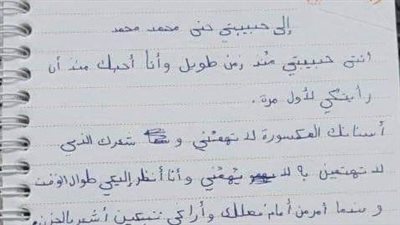 إلى حبيبتي حنى محمد محمد
انتي حبيبتي مُند زمن طويل وأنا أحبك مند أن
رأيتكي لأول مرة.
أسنانك المكسورة لا تهمّني و شعرك الذي
لا تهتمين به لا يهمّني وأنا أنظر إليكي طوال الوقت
و عندما أمر من أمام منزلك وأراكي تبكين أشعر بالحزن